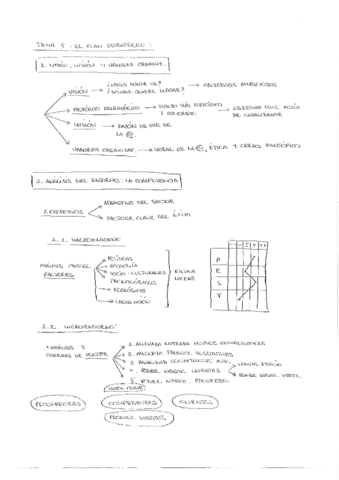 TEMA 5: EL PLAN ESTRATÉGICO:
1. VISIÓN, MISIÓN Y VALORES ORGANIZ.
VISIÓN
¿HACIA DÓNDE VA?
¿DÓNDE QUIERE LLEGAR?
OBJETIVOS AMBICIOSOS
PROPÓSITO ESTRATÉGICO
PUNTO MÁS ESPECÍFICO
Y CONCRETO
OBJETIVO QUE ACTÚA
DE CATALIZADOR
MISIÓN
RAZÓN DE SER DE
LA
VALORES ORGANIZAT.
MORAL DE LA, ÉTICA Y CREDO FILOSÓFICO
2. ANÁLISIS DEL ENTORNO: LA COMPETENCIA
2 OBJETIVOS
ATRACTIVO DEL SECTOR
FACTORES CLAVE DEL ÉXITO
2.1. MACROENTORNO
ANÁLISIS PESTEL
FACTORES
POLÍTICOS
ECONOMÍA
SOCIO-CULTURALES
TECNOLÓGICOS
ECOLÓGICOS
LEGISLACIÓN
ESCALA
P
E
S
T
2.2. MICROENTORNO
ANÁLISIS 5
FUERZAS DE PORTER
1. AMENAZA ENTRADA NUEVOS COMPETIDORES
2. AMENAZA PRODUCT. SUSTITUTIVOS
3. RIVALIDAD COMPETIDORES
4. PODER NEGOC. CLIENTES
5. PODER NEGOC. PROVEED.
PROVEEDORES
COMPETIDORES
CLIENTES
PRODUCT. SUSTITUT.